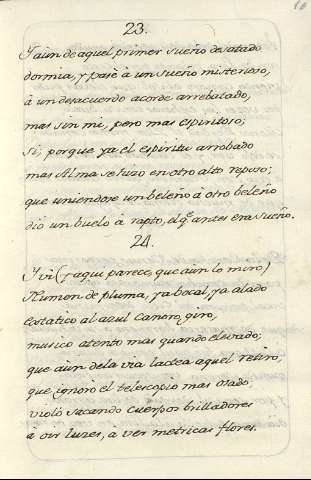 23.
Y aùn de aquel primer sueño desatado
dormia, y pasè à un sueño misterioso,
à un desacuerdo acorde arrebatado,
mas sin mi, pero mas espiritoso;
si; porque ya el espiritu arrobado
mas Alma se hizo en otro alto reposo;
que uniendose un beleño à otro beleño
diò un buelo à rapto, el q.e antes era sueño.
24.
Y vi (y aqui parece, que aun lo miro)
Numen de pluma, ya bocal, ya alado
extatico al azul canoro giro,
musico atento mas quando elevado;
que aùn de la via lactea aquel retiro,
que ignorò el telescopio mas osado,
violò sacando cuerpos brilladores
à oir luzes, à ver metricas flores.